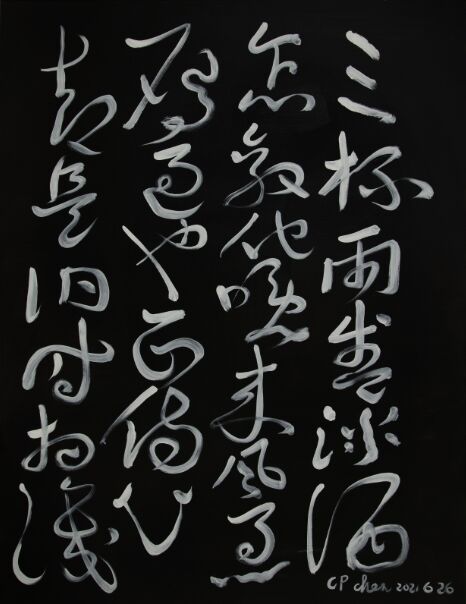 三杯兩盞淡酒
怎敵他晚來風急
雁過也正傷心
却是旧時相識
CP chen 2021 6 26